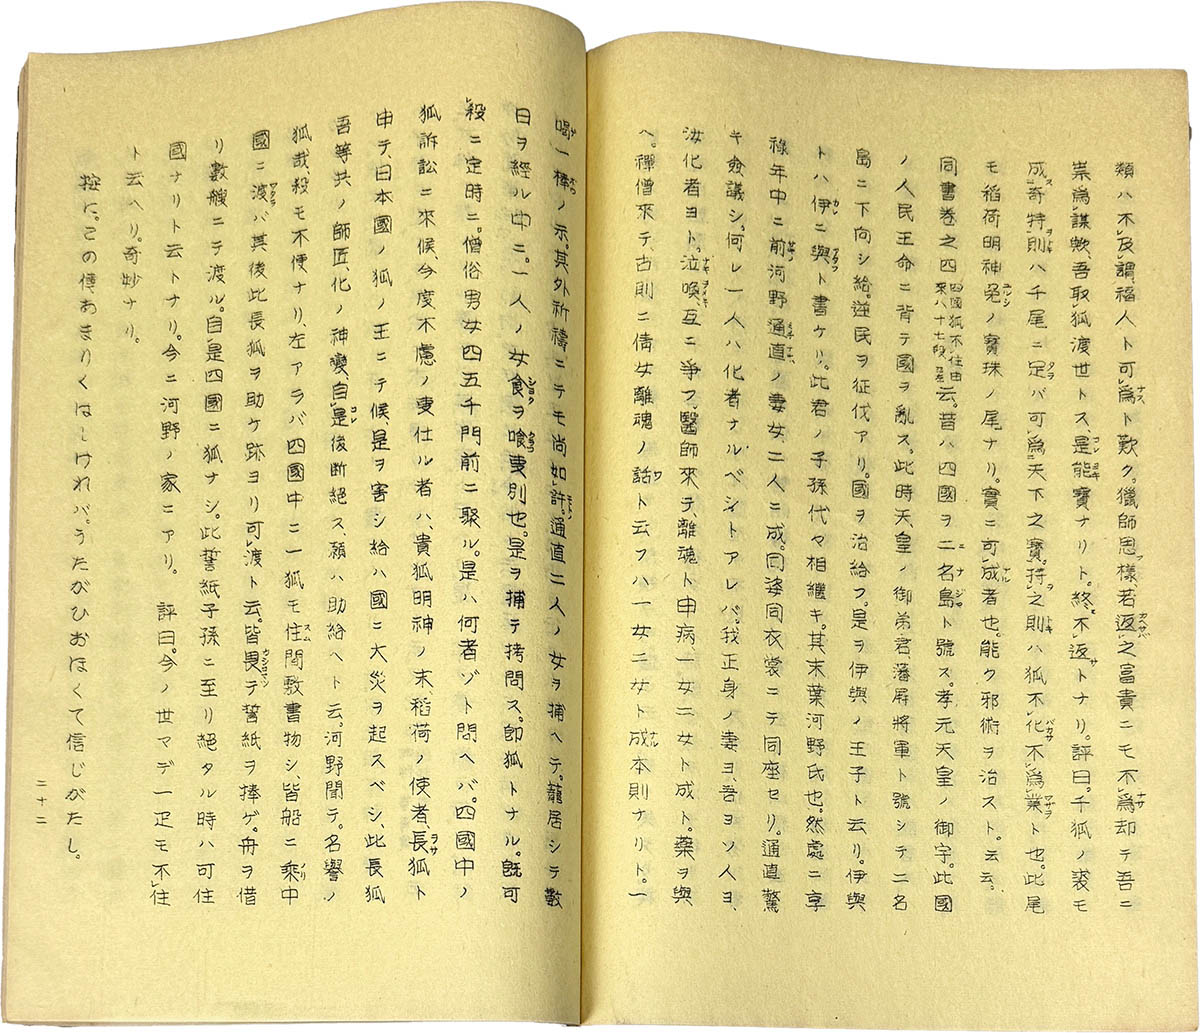 類ハ不及謂福人ト可爲ト歎ク。獵師思樣、若返之富貴ニモ不爲却テ吾ニ
祟爲謀欤、吾取狐渡世トス、是能寶ナリト。終不返トナリ。評曰。千狐ノ裘モ
成奇特則ハ千尾ニ足バ可爲天下之寶。持之則ハ狐不化不爲業ト也。此尾
モ稻荷明神免ノ寳珠ノ尾ナリ。實ニ可成者也。能ク邪術ヲ治スト。云云。
同書卷之四 四國狐不住由來八十七段 云。昔ハ四國ヲ二名島ト號ス。孝元天皇ノ御宇。此國
ノ人民王命ニ背テ國ヲ亂ス。此時天皇ノ御弟君藩屛將軍ト號シテ二名
島ニ下向シ給。逆民ヲ征伐アリ。國ヲ治給フ。是ヲ伊與ノ王子ト云リ。伊與
トハ伊ニ與ト書ケリ。此君ノ子孫代々相繼キ。其末葉河野氏也。然處ニ享
祿年中ニ前河野通直ノ妻女、二人ニ成。同姿同衣裳ニテ同座セリ。通直驚
キ僉議シ。何レ一人ハ化者ナルベシトアレバ。我正身ノ妻ヨ、吾ヨソ人ヨ、
汝化者ヨト。泣喚、互ニ爭フ。醫師來テ、離魂ト申病、一女二女ト成ト。藥ヲ與
ヘ。禪僧來テ、古則ニ倩女離魂ノ話ト云フハ一女ニ二女ト成本則ナリト。一
喝一棒ノ示。其外祈禱ニテモ尚如許。通直二人ノ女ヲ捕ヘテ。籠居シテ數
日ヲ經ル中ニ。一人ノ女食ヲ喰叓別也。是ヲ捕テ拷問ス。卽狐トナル。旣可
殺ニ定時ニ。僧俗男女四五千門前ニ聚ル。是ハ何者ゾト問ヘバ。四國中ノ
狐訴訟ニ來候、今度不慮ノ叓仕ル者ハ、貴狐明神ノ末稻荷ノ使者、長狐ト
申テ、日本國ノ狐ノ王ニテ候、是ヲ害シ給ハ國ニ大災ヲ起スベシ、此長狐
吾等共ノ師匠、化ノ神變自是後斷絕ス、願ハ助給ヘト云。河野聞テ。名譽ノ
狐哉、殺モ不便ナリ、左アラバ四國中ニ一狐モ住間敷書物シ、皆船ニ乘中
國ニ渡バ其後此長狐ヲ助ケ跡ヨリ可渡ト云。皆畏テ誓紙ヲ捧ゲ。舟ヲ借
リ數艘ニテ渡ル。自是四國ニ狐ナシ。此誓紙子孫ニ至リ絕タル時ハ可住
國ナリト云トナリ。今ニ河野ノ家ニアリ。 評曰。今ノ世マデ一疋モ不住
ト云ヘリ。奇妙ナリ。
按に。この傳あまりくはしけれバ。うたがひおほくて信じがたし。
二十二